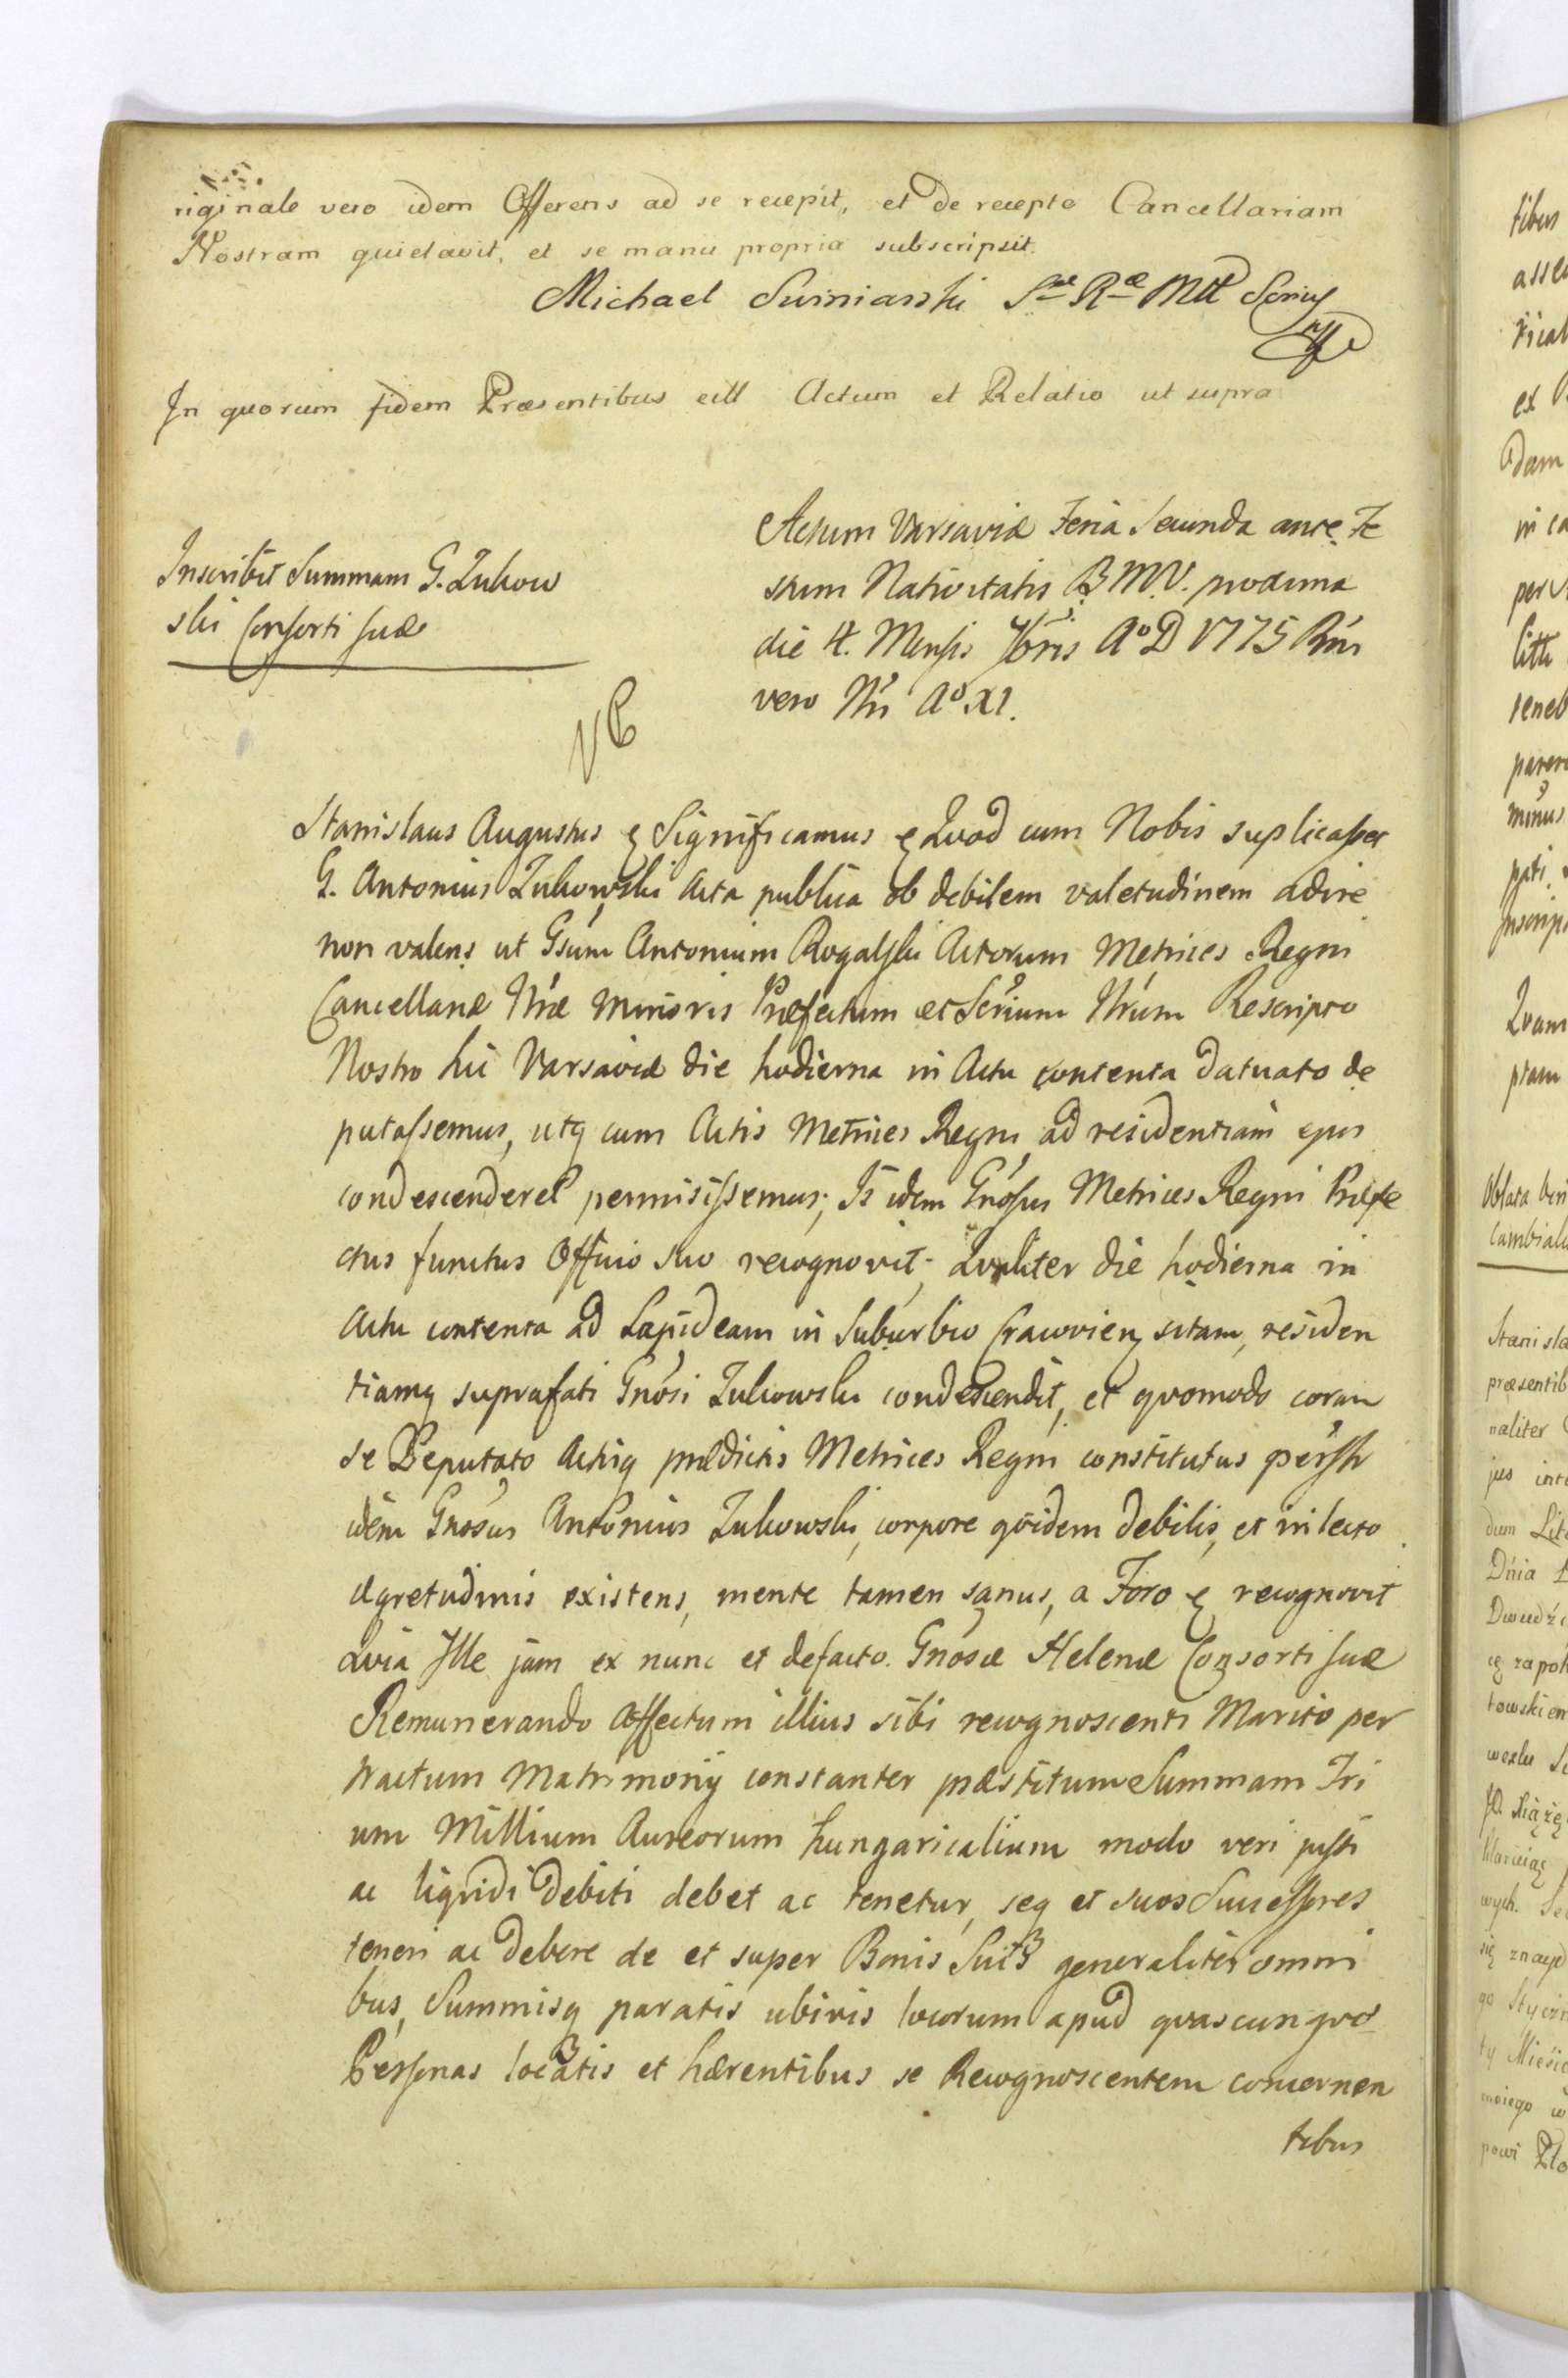 riginale vero idem Offerens ad se recepit, et de recepto Cancellariam
Nostram quietavit, et se manu propria subscripsit.
Michael Swiniarski Sæ Ræ Mtt
In quorum fidem Præsentibus ett Actum et Relatio ut supra
Inscribit Summam G. Zukow
ski Consorti suæ
Actum Varsaviæ Feria Secunda ante Fe
stum Nativitatis B.M.V. proxima
die 4. Mensis 7bris Aº D 1775 Rni
vero Nri Aº XI.
Stanislaus Augustus ę Significamus ę Quod cum Nobis suplicasset
G. Antonius Zukowski Acta publica ob debilem valetudinem adire
non valens ut Gsum Antonium Rogalski Actorum Metrices Regni
Cancellariæ Nræ Minoris Præfectum et Scrium Nrum Rescripto
Nostro hic Varsaviæ die hodierna in Actu contenta datuato de
putassemus, utq cum Actis Metrices Regni ad residentiam ejus
condescenderet permisissemus; Is idem Gnosus Metrices Regni Præfe
ctus functus Officio suo recognovit; Qualiter die hodierna in
Actu contenta ad Lapideam in Suburbio Cracovien sitam, residen
tiamq suprafati Gnosi Zukowski condescendit, et quomodo coram
se Deputato Actisq prædictis Metrices Regni constitutus perslr
idem Gnosus Antonius Zukowski, corpore qvidem debilis, et in lecto
ægretudinis existens, mente tamen sanus, a Foro ę recognovit
Qvia Ille jam ex nunc et defacto Gnosæ Helenæ Consorti suæ
Remunerando affectum illius sibi recognoscenti Marito per
tractum Matrimonij constanter præstitum Summam Tri
um Millium Aureorum hungaricalium modo veri justi
ac liqvidi Debiti debet ac tenetur, seq et suos Successores
teneri ac debere de et super Bonis Suis generaliter omni
bus, Summisq paratis ubivis locorum apud qvascunqve
Personas locatis et hærentibus se Recognoscentem concernen
tibus
tibus
asse
rical
ex
dam
in ca
per
litt
teneb
parere
minus
pati
Inscrip
Qvam
ptam
Oblata
Cambial
Stanisla
præsentib
naliter
jus
dum
Dnia
Dwudź
cę zapoł
towskiem
wexlu
wych.
się znayd
go Stycz
ty Miesi
moiego
powi